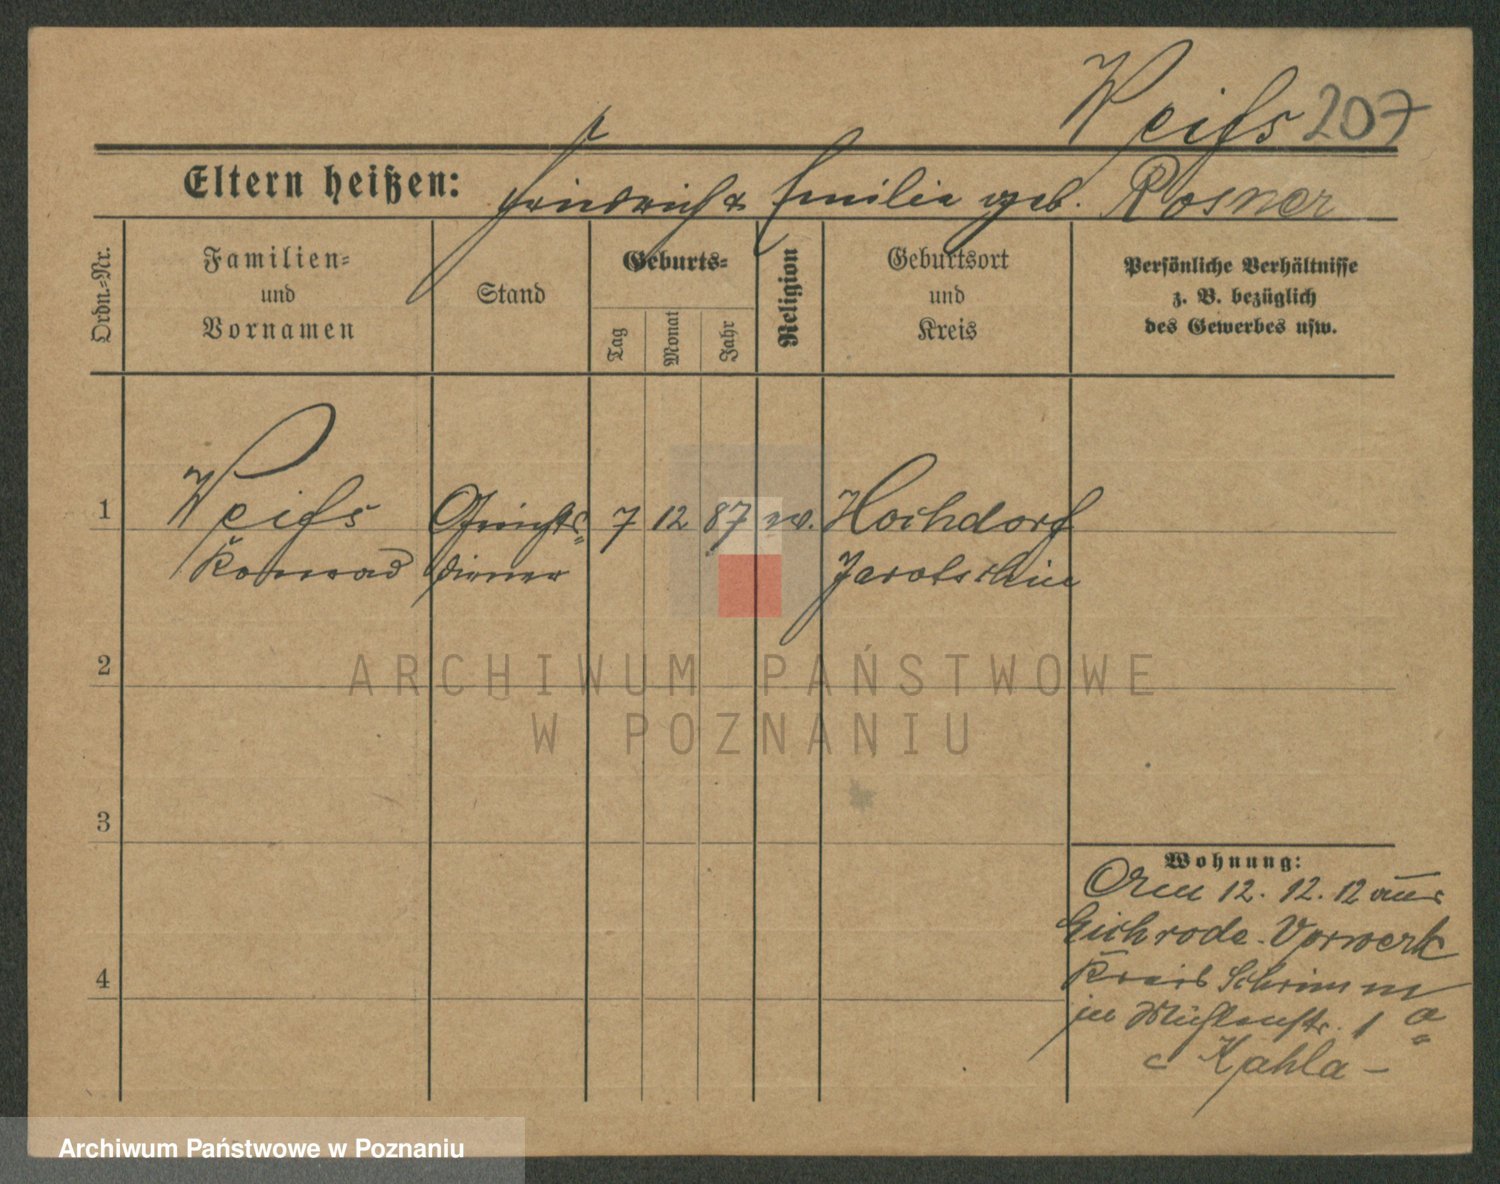 Weiſs 207
Eltern heißen: Friedrich & Emilie geb. Rosner
Ordn.-Nr.
Familien-
und
Vornamen
Stand
Geburts-
Tag
Monat
Jahr
Religion
Geburtsort
und
Kreis
Persönliche Verhältnisse
z. B. bezüglich
des Gewerbes usw.
1 Weiſs Gerichts- 7 12 87 ev. Hochdorf
Konrad diener Jarotschin
2
ARCHIWUM PAŃSTWOWE
W POZNANIU
3
Wohnung:
Am 12. 12. 12 aus
Eichrode-Vorwerk
4
Kreis Schrimm
in Mühlenstr. 1 a
Kahla -
Archiwum Państwowe w Poznaniu